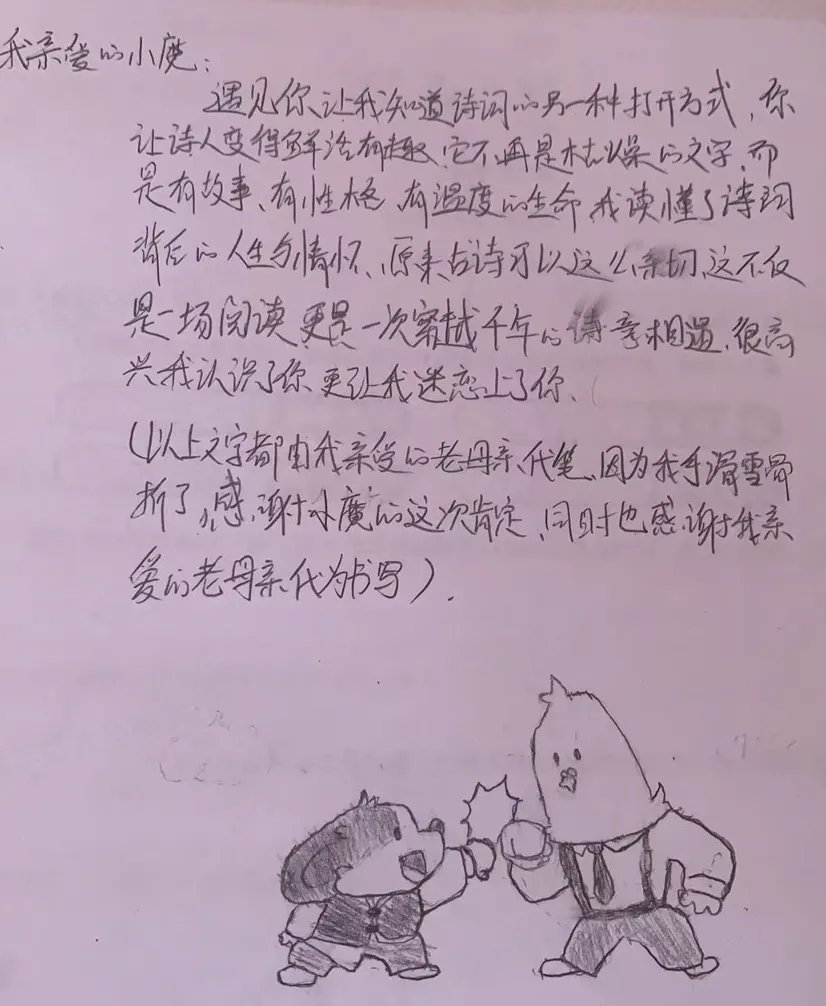 我亲爱的小魔:
遇见你、让我知道诗词的另一种打开方式,你
让诗人变得鲜活有趣,它不再是枯燥的文字,而
是有故事、有性格、有温度的生命,我读懂了诗词
背后的人生与情怀、原来古诗可以这么亲切,这不仅
是一场阅读,更是一次穿越千年的诗意相遇、很高
兴我认识了你,更让我迷恋上了你、
(以上文字都由我亲爱的老母亲代笔,因为我手滑雪骨
折了,感谢小魔的这次肯定,同时也感谢我亲
爱的老母亲代为书写).